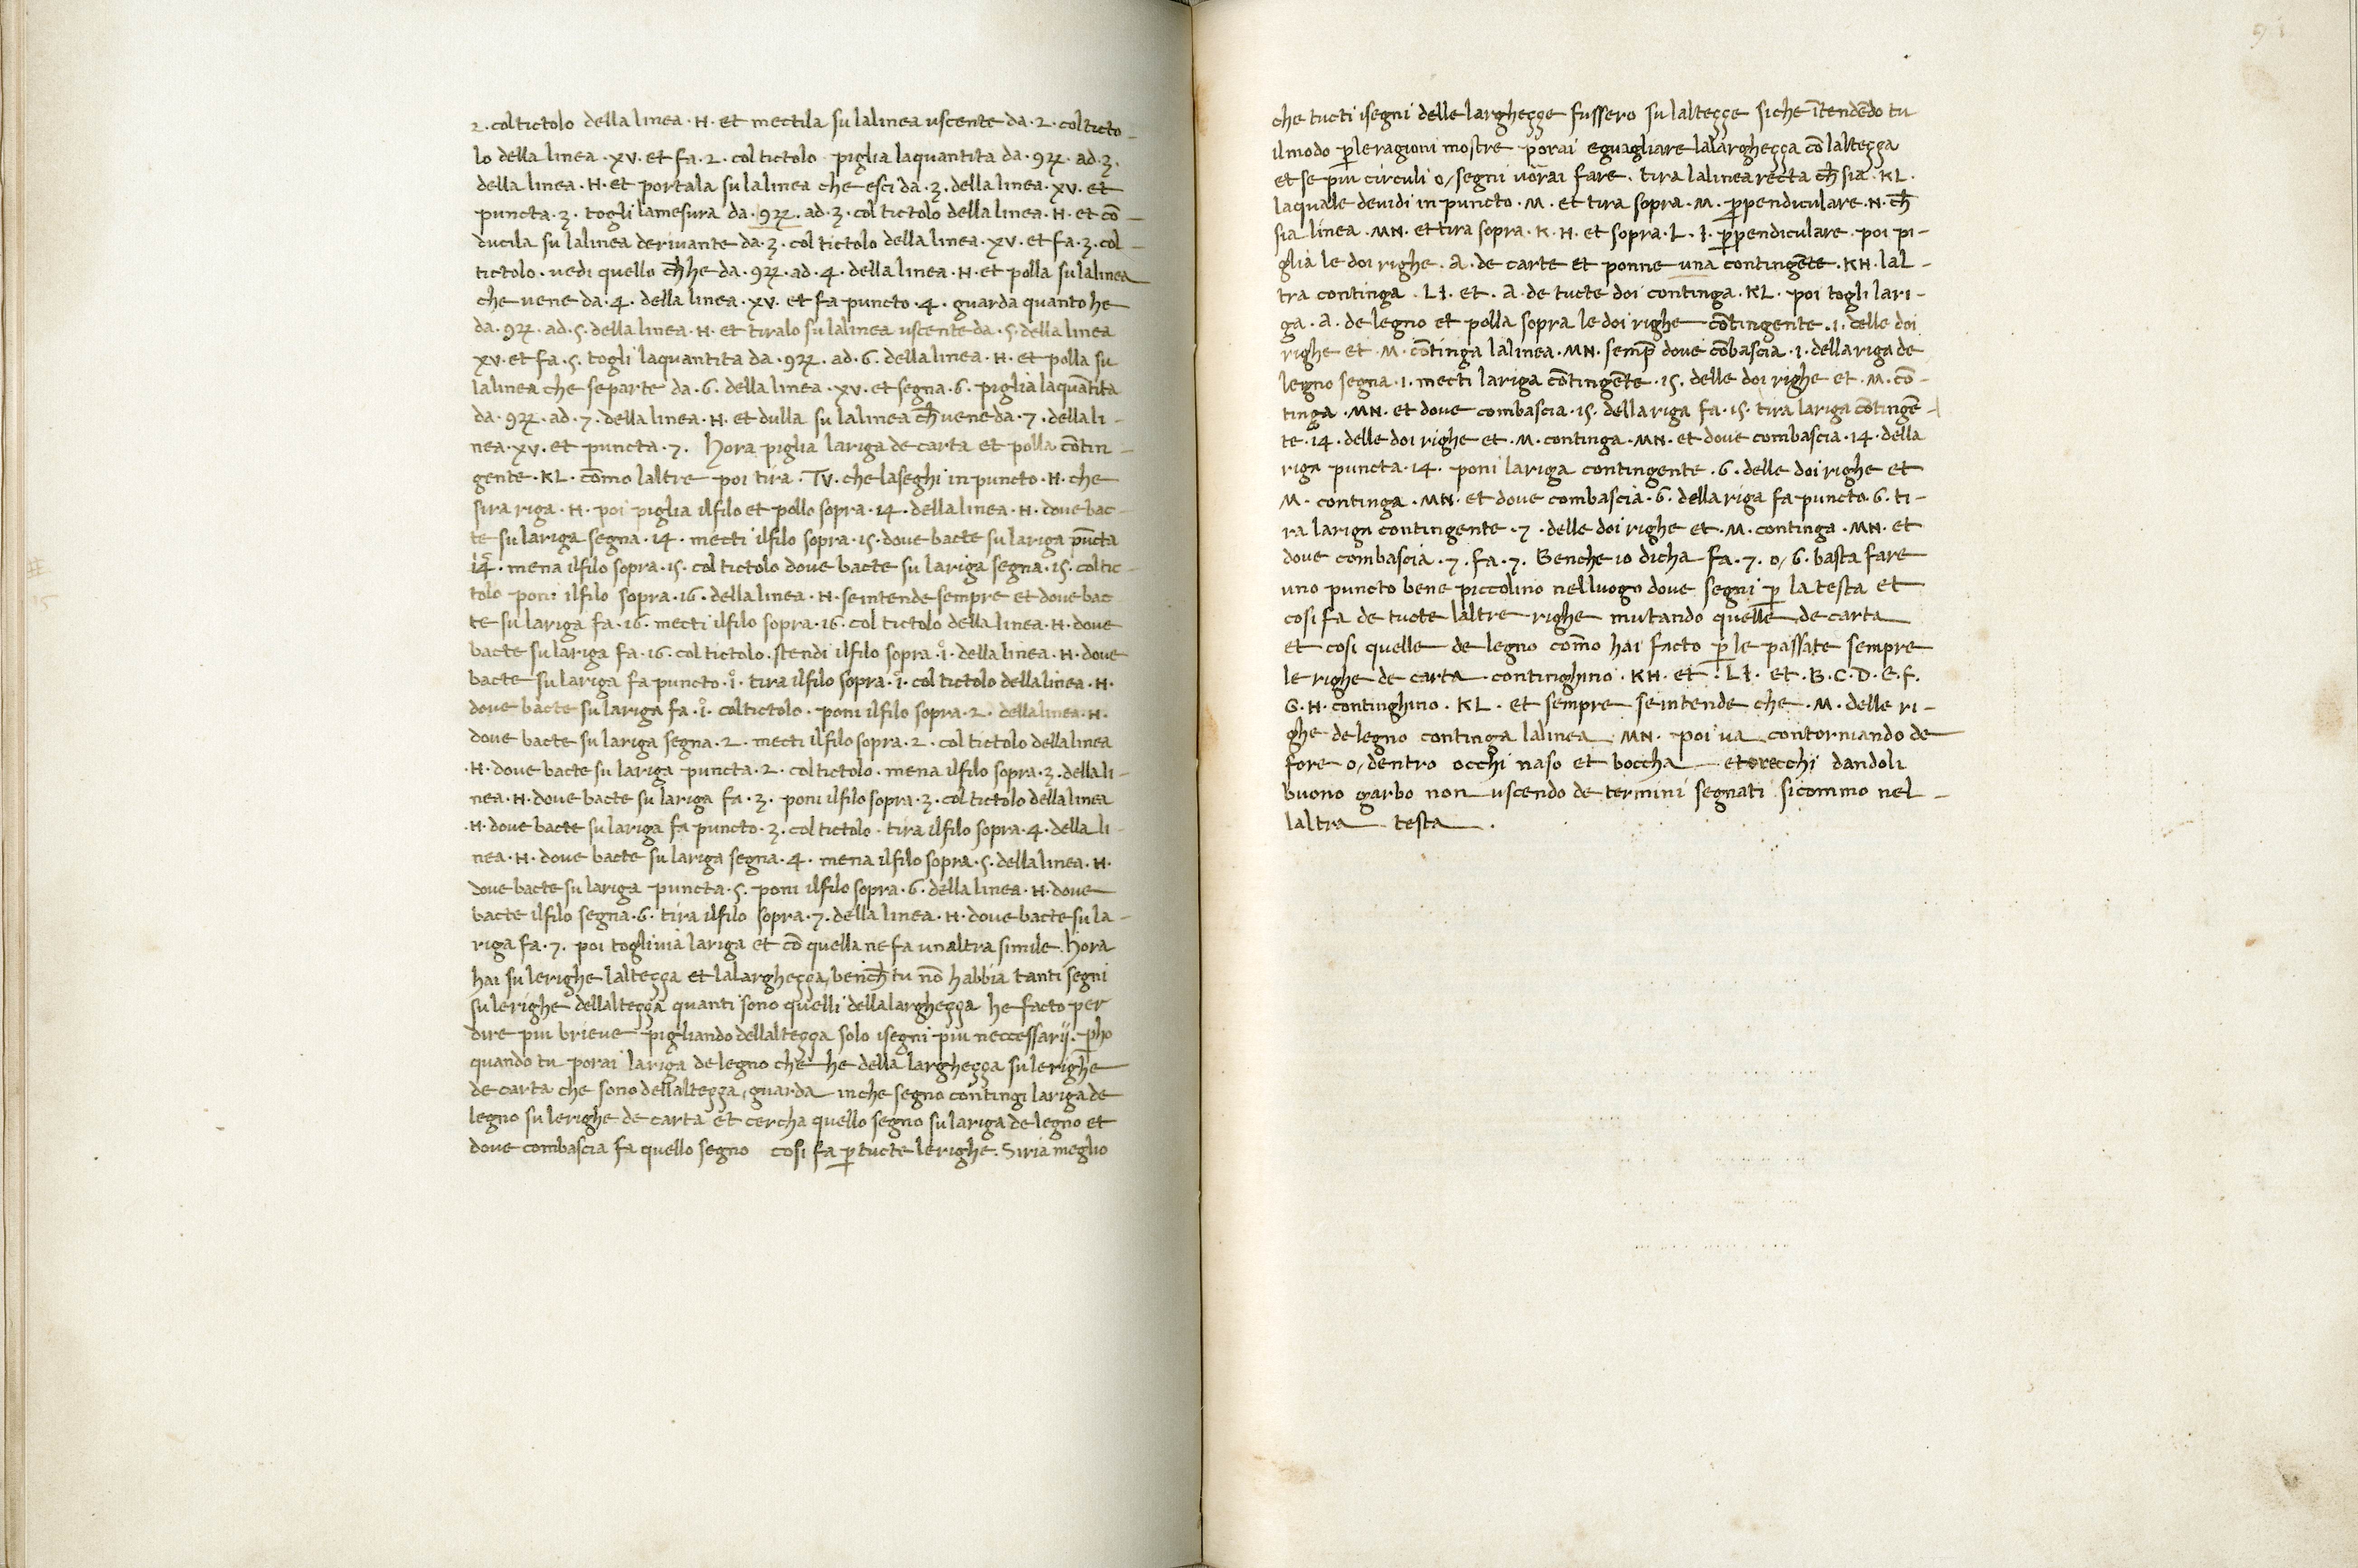 2. col tictolo della linea .H. et mectila su la linea uscente da .2. col ticto-
lo della linea .XV. et fa .2. col tictolo piglia la quantita da .9ꝝ. ad .3.
della linea .H. et portala su la linea che esci da .3. della linea .XV. et
puncta .3. togli la mesura da .9ꝝ. ad .3. col tictolo della linea .H. et cō-
ducila su la linea derivante da .3. col tictolo della linea .XV. et fa .3. col-
tictolo . vedi quello ch̄ he da .9ꝝ. ad .4. della linea .H. et polla su la linea
che vene da .4. della linea .XV. et fa puncto .4. guarda quanto he
da .9ꝝ. ad .5. della linea .H. et tiralo su la linea uscente da .5. della linea
XV. et fa .5. togli la quantita da .9ꝝ. ad .6. della linea .H. et polla su
la linea che se parte da .6. della linea .XV. et segna .6. piglia la quātita
da .9ꝝ. ad .7. della linea .H. et dulla su la linea ch̄ vene da .7. della li-
nea .XV. et puncta .7. Hora piglia la riga de carta et polla cōtin-
gente .KL. cōmo laltre poi tira .TV. che la seghi in puncto .H. che
sira riga .H. poi piglia il filo et pollo sopra .14. della linea .H. dove bac-
te su la riga segna .14. mecti il filo sopra .15. dove bacte su la riga pūcta
14. mena il filo sopra .15. col tictolo dove bacte su la riga segna .15. col tic-
tolo poni il filo sopra .16. della linea .H. se intende sempre et dove bac
te su la riga fa .16. mecti il filo sopra .16. col tictolo della linea .H. dove
bacte su la riga fa .16. col tictolo . stendi il filo sopra .i°. della linea .H. dove
bacte su la riga fa puncto .i°. tira il filo sopra .i°. col tictolo della linea .H.
dove bacte su la riga fa .i°. col tictolo . poni il filo sopra .2. della linea .H.
dove bacte su la riga segna .2. mecti il filo sopra .2. col tictolo della linea
.H. dove bacte su la riga puncta .2. col tictolo . mena il filo sopra .3. della li-
nea .H. dove bacte su la riga fa .3. poni il filo sopra .3. col tictolo della linea
.H. dove bacte su la riga fa puncto .3. col tictolo . tira il filo sopra .4. della li-
nea .H. dove bacte su la riga segna .4. mena il filo sopra .5. della linea .H.
dove bacte su la riga puncta .5. poni il filo sopra .6. della linea .H. dove
bacte il filo segna .6. tira il filo sopra .7. della linea .H. dove bacte su la-
riga fa .7. poi togli via la riga et cō quella ne fa unaltra simile. Hora
hai su le righe laltezza et la larghezza, bench̄ tu nō habbia tanti segni
su le righe dellaltezza quanti sono quelli della larghezza he facto per
dire piu brieve pigliando dellaltezza solo i segni piu neccessarij. p̱ho
quando tu porai la riga de legno che he della larghezza su le righe
de carta che sono dellaltezza, guarda in che segno contingi la riga de
legno su le righe de carta et cercha quello segno su la riga de legno et
dove combascia fa quello segno cosi fa p̱ tucte le righe. Siria meglio
che tucti i segni delle larghezze fussero su laltezze si che ītendēdo tu
il modo p̱ le ragioni mostre porai eguagliare la larghezza cō laltezza
et se piu circuli o/ segni vōrai fare . tira la linea recta ch̄ sia .KL.
la quale devidi in puncto .M. et tira sopra .M. p̱pendiculare .N. ch̄
sia linea .MN. et tira sopra .K. H. et sopra .L. I. p̱pendiculare . poi pi-
glia le doi righe .A. de carte et ponne una contingēte .KH. lal-
tra continga .LI. et .A. de tucte doi continga .KL. poi togli la ri-
ga .A. de legno et polla sopra le doi righe cōtingente .1. delle doi
righe et .M. cōtinga la linea .MN. semp̱ dove cōbascia .1. della riga de
legno segna .1. mecti la riga cōtingēte .15. delle doi righe et .M. cō-
tinga .MN. et dove combascia .15. della riga fa .15. tira la riga cōtingē-
te .14. delle doi righe et .M. continga .MN. et dove combascia .14. della
riga puncta .14. poni la riga contingente .6. delle doi righe et
M. continga .MN. et dove combascia .6. della riga fa puncto .6. ti-
ra la riga contingente .7. delle doi righe et .M. continga .MN. et
dove combascia .7. fa .7. Benche io dicha fa .7. o/ 6. basta fare
uno puncto bene piccolino nel luogo dove segni p̱ la testa et
cosi fa de tucte laltre righe mutando quelle de carta
et cosi quelle de legno cōmo hai facto p̱ le passate sempre
le righe de carta continghino .KH. et .LI. et .B.C.D.E.F.
G.H. continghino .KL. et sempre se intende che .M. delle ri-
ghe de legno continga la linea .MN. poi va contorniando de
fore o/ dentro occhi naso et boccha et orecchi dandoli
buono garbo non uscendo de termini segnati si commo nel-
laltra testa .